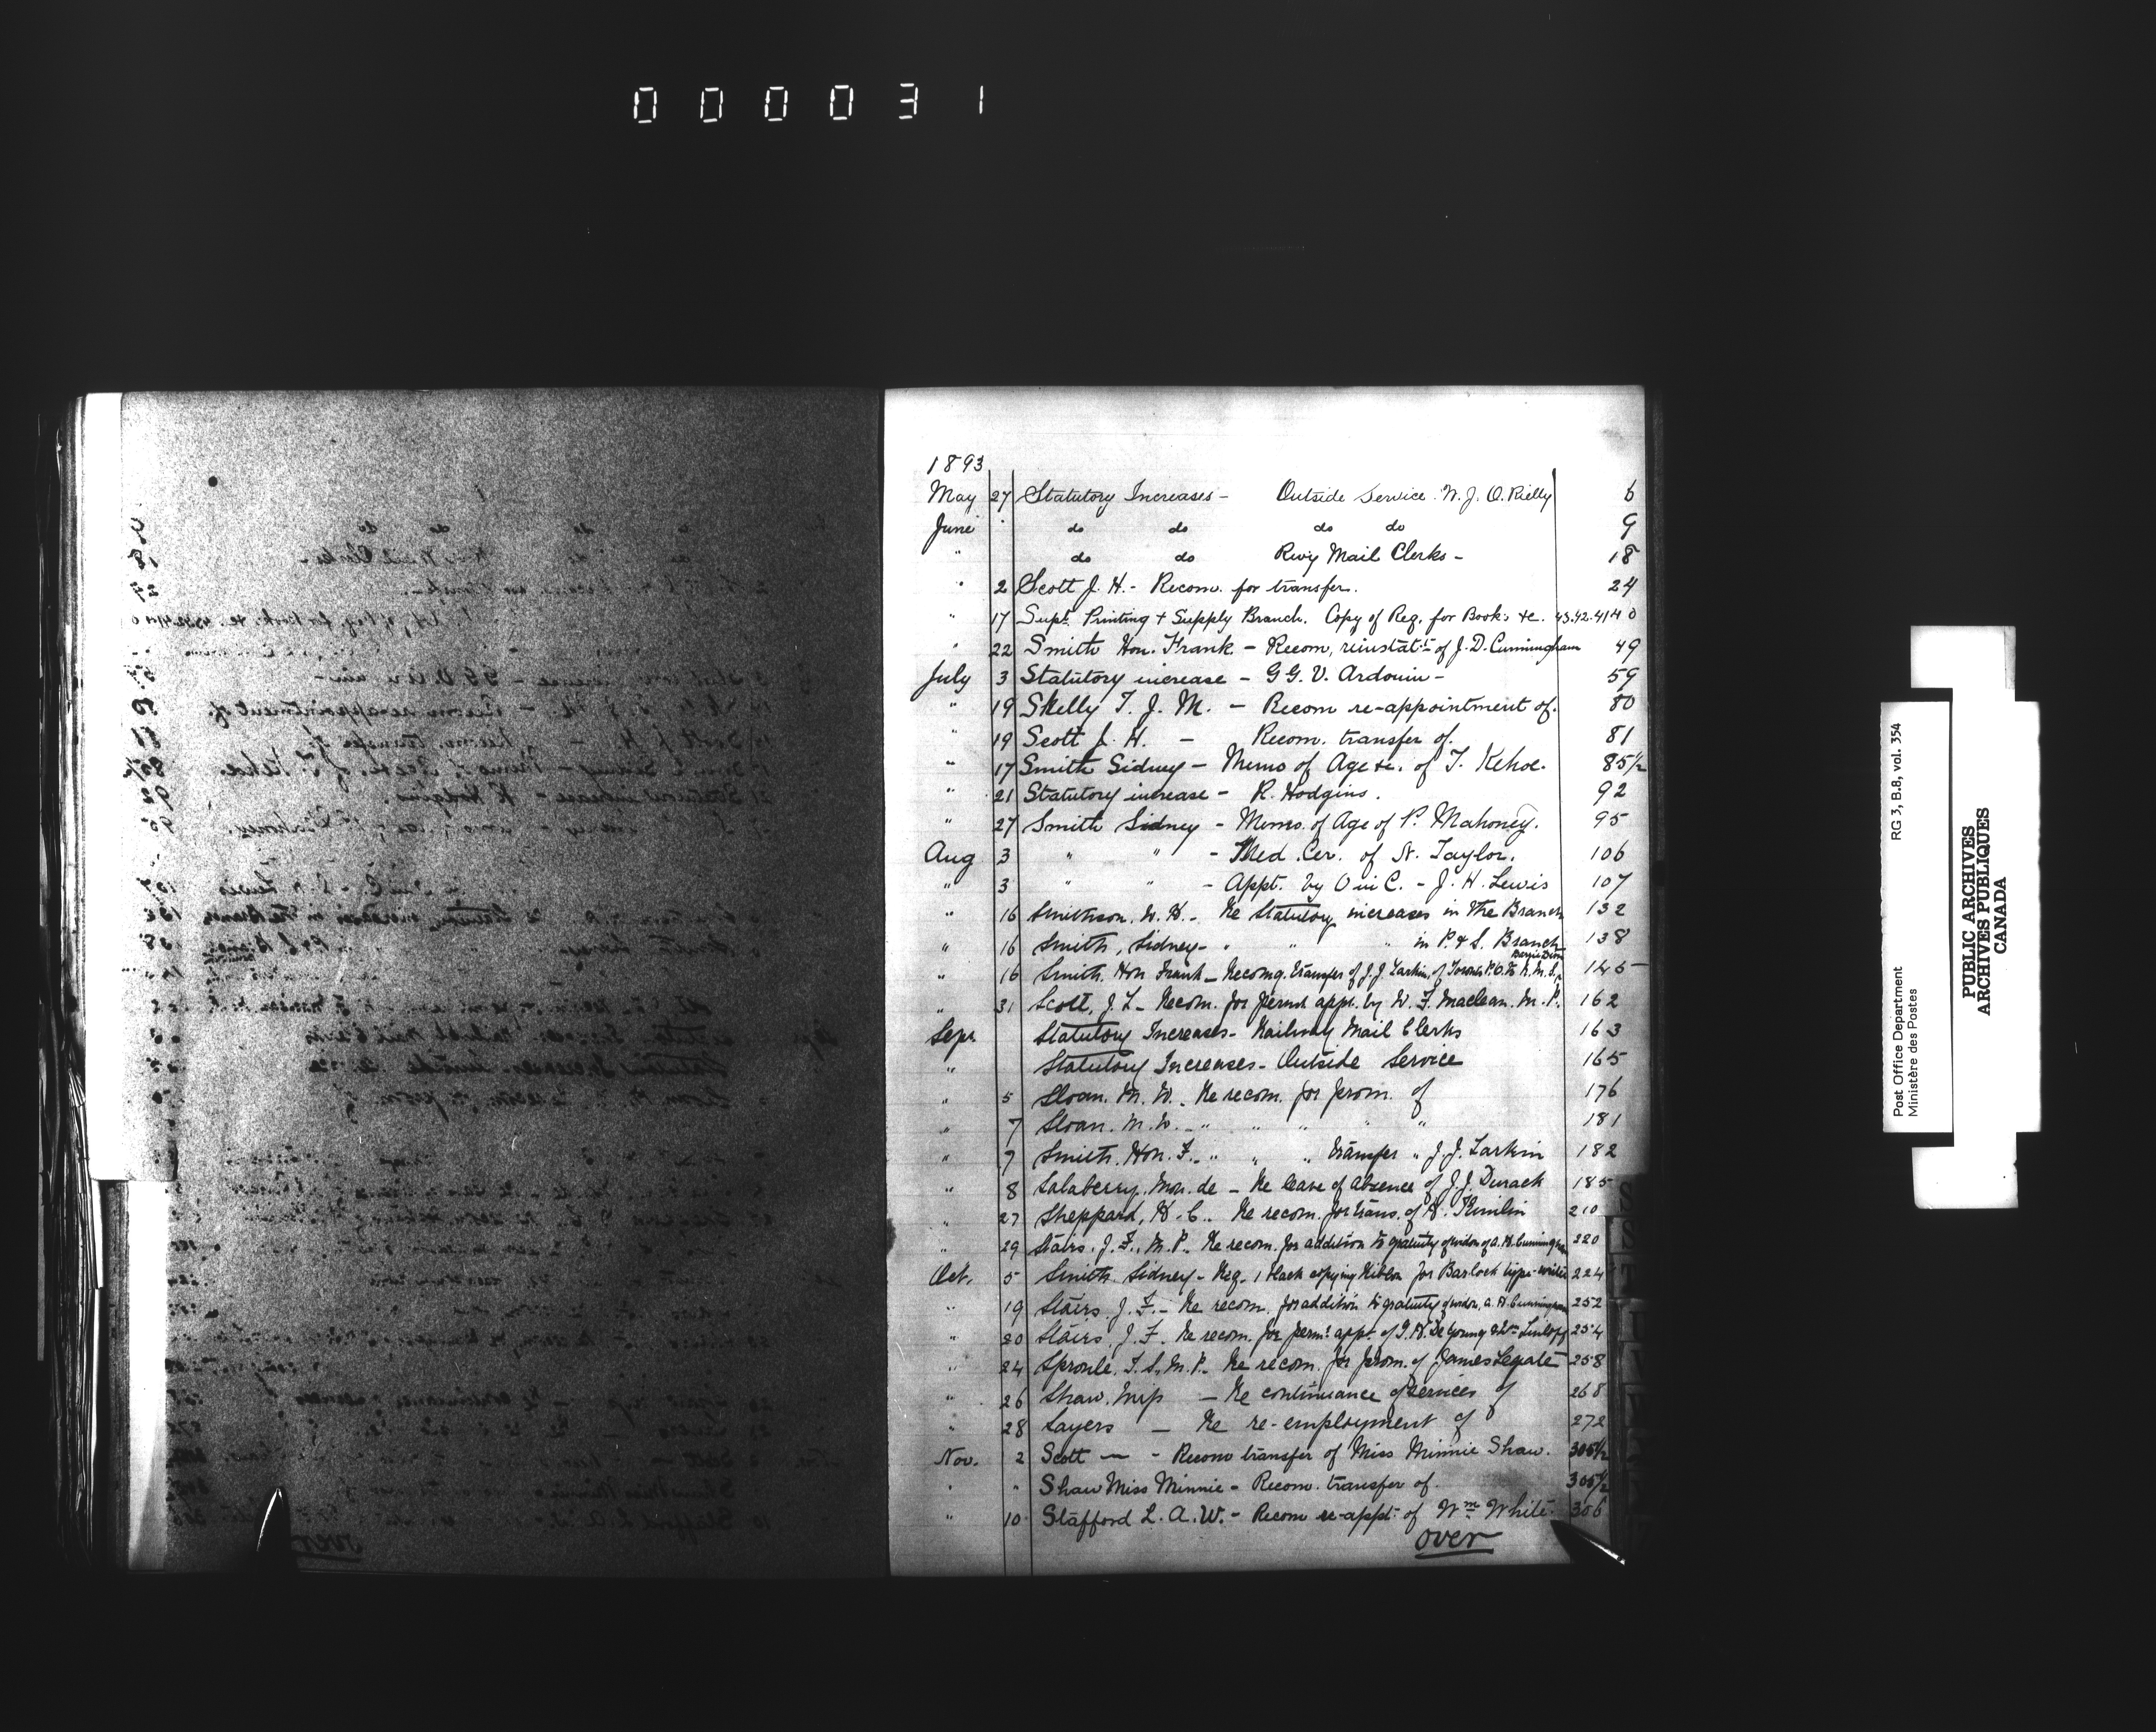 000031
1893
May 27 Statutory Increases - Outside Service W. J. O. Rielly 6
June " do do do do 9
" do do Rwy Mail Clerks - 18
" 2 Scott J. H. - Recom. for transfer. 24
" 17 Supt. Printing + Supply Branch. Copy of Reg. for Books &c. 43.42.41 40
" 22 Smith Hon. Frank - Recom, reinstatt of J. D. Cunningham 49
July 3 Statutory increase - G. G. V. Ardouin - 59
" 19 Skelly T. J. M. - Recom re-appointment of. 80
" 19 Scott J. H. - Recom. transfer of. 81
" 17 Smith Sidney - Memo of Age &c. of T. Kehoe. 85½
" 21 Statutory increase - R. Hodgins. 92
" 27 Smith Sidney - Memo. of Age of P. Mahoney. 95
Aug 3 " " - Med. Cer. of N. Taylor. 106
" 3 " " - Appt. by O in C. - J. H. Lewis 107
" 16 Smithson. W. H. - Re Statutory increases in the Branch 132
" 16 Smith, Sidney - " " " in P. & S. Branch 138
" 16 Smith. Hon Frank - Recomg. transfer of J. J. Larkin, of Toronto P.O. to R. M. S., Barrie Divn 145
" 31 Scott, J. L - Recom. for permt appt. by W. F. Maclean. M. P. 162
Sept. Statutory Increases - Railway Mail Clerks 163
" Statutory Increases - Outside Service 165
" 5 Sloan. M. W. - Re recom. for prom. of 176
" 7 Sloan. M. W. - " " " " 181
" 7 Smith. Hon. F. - " " " transfer " J. J. Larkin 182
" 8 Salaberry. Mon. de - Re leave of absence of J. J. Durack 185
" 27 Sheppard, H. C. Re recom. for trans. of H. Kimlin 210
" 29 Stairs. J. F., M. P. Re recom. for addition to gratuity of widow of A. H. Cunningham 220
Oct. 5 Smith. Sidney - Req. 1 black copying Ribbon for Barlock type-writer 224
" 19 Stairs. J. F. - Re recom. for addition to gratuity of widow, A. H. Cunningham 252
" 20 Stairs. J. F. Re recom. for permt appt of J. H. De Young & Wm 254
" 24 Sproule. T. S. M. P. Re recom. for prom. of James Legate 258
" 26 Shaw. Mrs - Re continuance of services of 268
" 28 Sayers - Re re-employment of 272
Nov. 2 Scott — - Recom transfer of Miss Minnie Shaw. 305½
" " Shaw Miss Minnie - Recom. transfer of. 305½
" 10 Stafford L. A. W. - Recom re-appt of Wm White. 306
over
Post Office Department RG 3, B.8, vol. 354
Ministère des Postes
PUBLIC ARCHIVES
ARCHIVES PUBLIQUES
CANADA